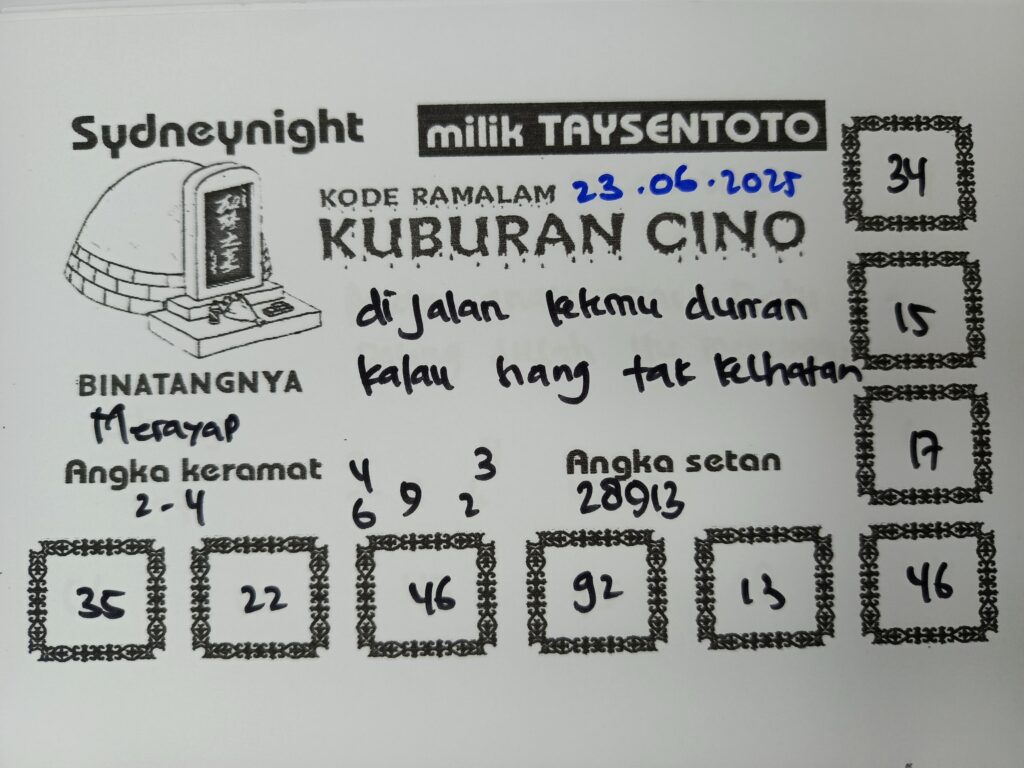 Sydneynight
milik TAYSENTOTO
KODE RAMALAM 23.06.2025
KUBURAN CINO
di jalan ketemu durran
kalau hang tak kelihatan
BINATANGNYA
Merayap
Angka keramat
2-4
4 3
6 9 2
Angka setan
28913
34
15
17
35 22 46 92 13 46